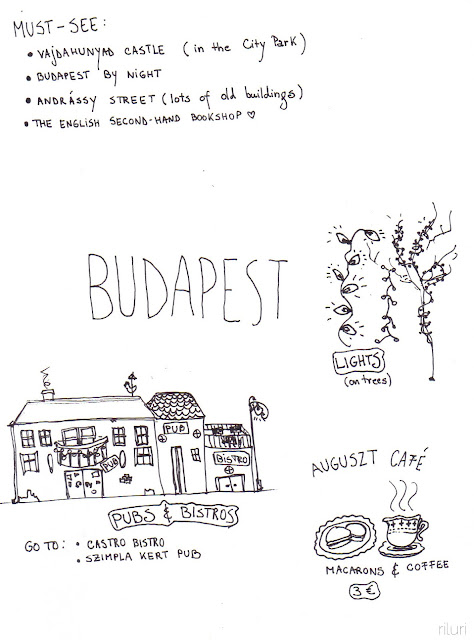 MUST-SEE:
• VAJDAHUNYAD CASTLE (in the City Park)
• BUDAPEST BY NIGHT
• ANDRÁSSY STREET (lots of old buildings)
• THE ENGLISH SECOND-HAND BOOKSHOP ♡
BUDAPEST
LIGHTS
(on trees)
PUB
PUB
BISTRO
PUBS & BISTROS
GO TO: • CASTRO BISTRO
• SZIMPLA KERT PUB
AUGUSZT CAFÉ
MACARONS & COFFEE
3 €
riluri